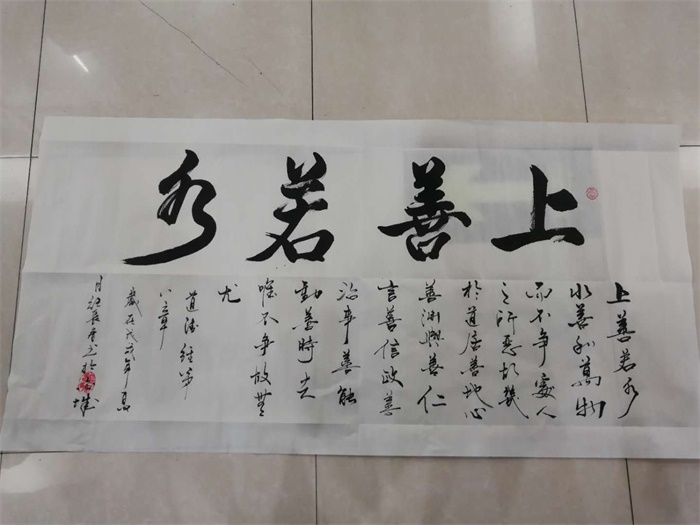 上善若水
上善若水
水善利萬物
而不爭處人
之所惡故幾
於道居善地心
善淵與善仁
言善信政善
治事善能
動善時夫
唯不爭故無
尤
道德經第
八章
歲在戊戌年
月